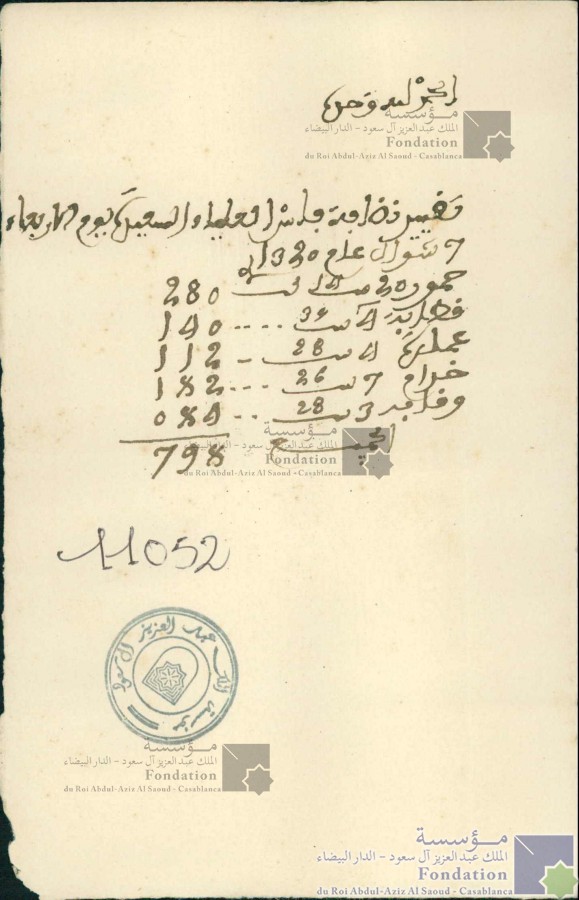 الحمد لله وحده
مؤسسة
الملك عبد العزيز آل سعود - الدار البيضاء
Fondation
du Roi Abdul-Aziz Al Saoud - Casablanca
نضافة فاس العلياء السعيدة يوم الاربعاء
7 شوال عام 1320
20 14 280
4 35 .... 140
عملة 4 28 112
خدام 7 26 ... 182
3 28 .. 084
الجميع 798
مؤسسة
الملك عبد العزيز آل سعود - الدار البيضاء
Fondation
du Roi Abdul-Aziz Al Saoud - Casablanca
11052
مؤسسة الملك عبد العزيز آل سعود
مؤسسة
الملك عبد العزيز آل سعود - الدار البيضاء
Fondation
du Roi Abdul-Aziz Al Saoud - Casablanca
مؤسسة
الملك عبد العزيز آل سعود - الدار البيضاء
Fondation
du Roi Abdul-Aziz Al Saoud - Casablanca